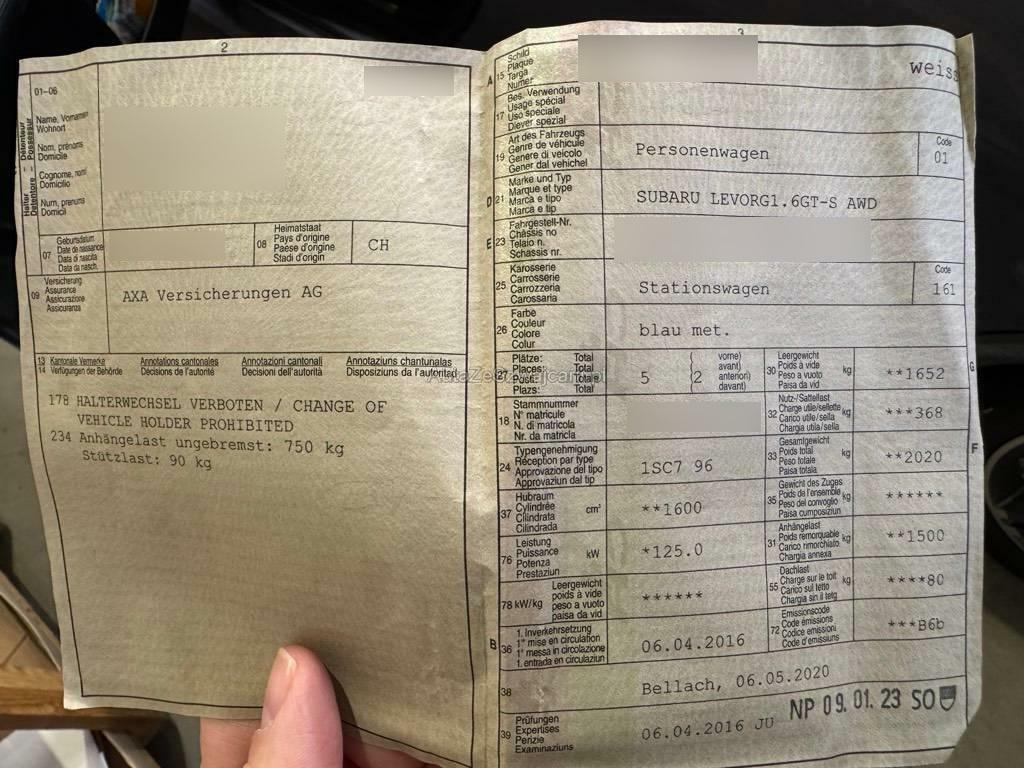 2
01–06
Halter
Détenteur
Detentore
Possessur
Name, Vornamen
Wohnort
Nom, prénoms
Domicile
Cognome, nomi
Domicilio
Num, prenums
Domicil
07
Geburtsdatum
Date de naissance
Data di nascita
Data da nasch.
08
Heimatstaat
Pays d'origine
Paese d'origine
Stadi d'origin
CH
09
Versicherung
Assurance
Assicurazione
Assicuranza
AXA Versicherungen AG
13 Kantonale Vermerke Annotations cantonales Annotazioni cantonali Annotaziuns chantunalas
14 Verfügungen der Behörde Décisions de l'autorité Decisioni dell'autorità Disposiziuns da l'autoritad
178 HALTERWECHSEL VERBOTEN / CHANGE OF
VEHICLE HOLDER PROHIBITED
234 Anhängelast ungebremst: 750 kg
Stützlast: 90 kg
3
A 15
Schild
Plaque
Targa
Numer
weiss
17
Bes. Verwendung
Usage spécial
Uso speciale
Diever spezial
19
Art des Fahrzeugs
Genre de véhicule
Genere di veicolo
Gener dal vehichel
Personenwagen
Code
01
D 21
Marke und Typ
Marque et type
Marca e tipo
Marca e tip
SUBARU LEVORG1.6GT-S AWD
E 23
Fahrgestell-Nr.
Châssis no
Telaio n.
Schassis nr.
25
Karosserie
Carrosserie
Carrozzeria
Carossaria
Stationswagen
Code
161
26
Farbe
Couleur
Colore
Colur
blau met.
Plätze: Total
Places: Total
Posti: Total
Plazs: Total
5
2
vorne)
avant)
anteriori)
davant)
G
30
Leergewicht
Poids à vide
Peso a vuoto
Paisa da vid
kg
**1652
18
Stammnummer
N° matricule
N. di matricola
Nr. da matricla
32
Nutz-/Sattellast
Charge utile/sellette
Carico utile/sella
Chargia utila/sella
kg
***368
24
Typengenehmigung
Réception par type
Approvazione del tipo
Approvaziun dal tip
1SC7 96
F
33
Gesamtgewicht
Poids total
Peso totale
Paisa totala
kg
**2020
37
Hubraum
Cylindrée
Cilindrata
Cilindrada
cm³
**1600
35
Gewicht des Zuges
Poids de l'ensemble
Peso del convoglio
Paisa cumposiziun
kg
******
76
Leistung
Puissance
Potenza
Prestaziun
kW
*125.0
31
Anhängelast
Poids remorquable
Carico rimorchiato
Chargia annexa
kg
**1500
78 kW/kg
Leergewicht
poids à vide
peso a vuoto
paisa da vid
******
55
Dachlast
Charge sur le toit
Carico sul tetto
Chargia sin il tetg
kg
****80
B 36
1. Inverkehrsetzung
1re mise en circulation
1a messa in circolazione
1. entrada en circulaziun
06.04.2016
72
Emissionscode
Code émissions
Codice emissioni
Code d'emissiuns
***B6b
38
Bellach, 06.05.2020
39
Prüfungen
Expertises
Perizie
Examinaziuns
06.04.2016 JU
NP 09.01.23 SO